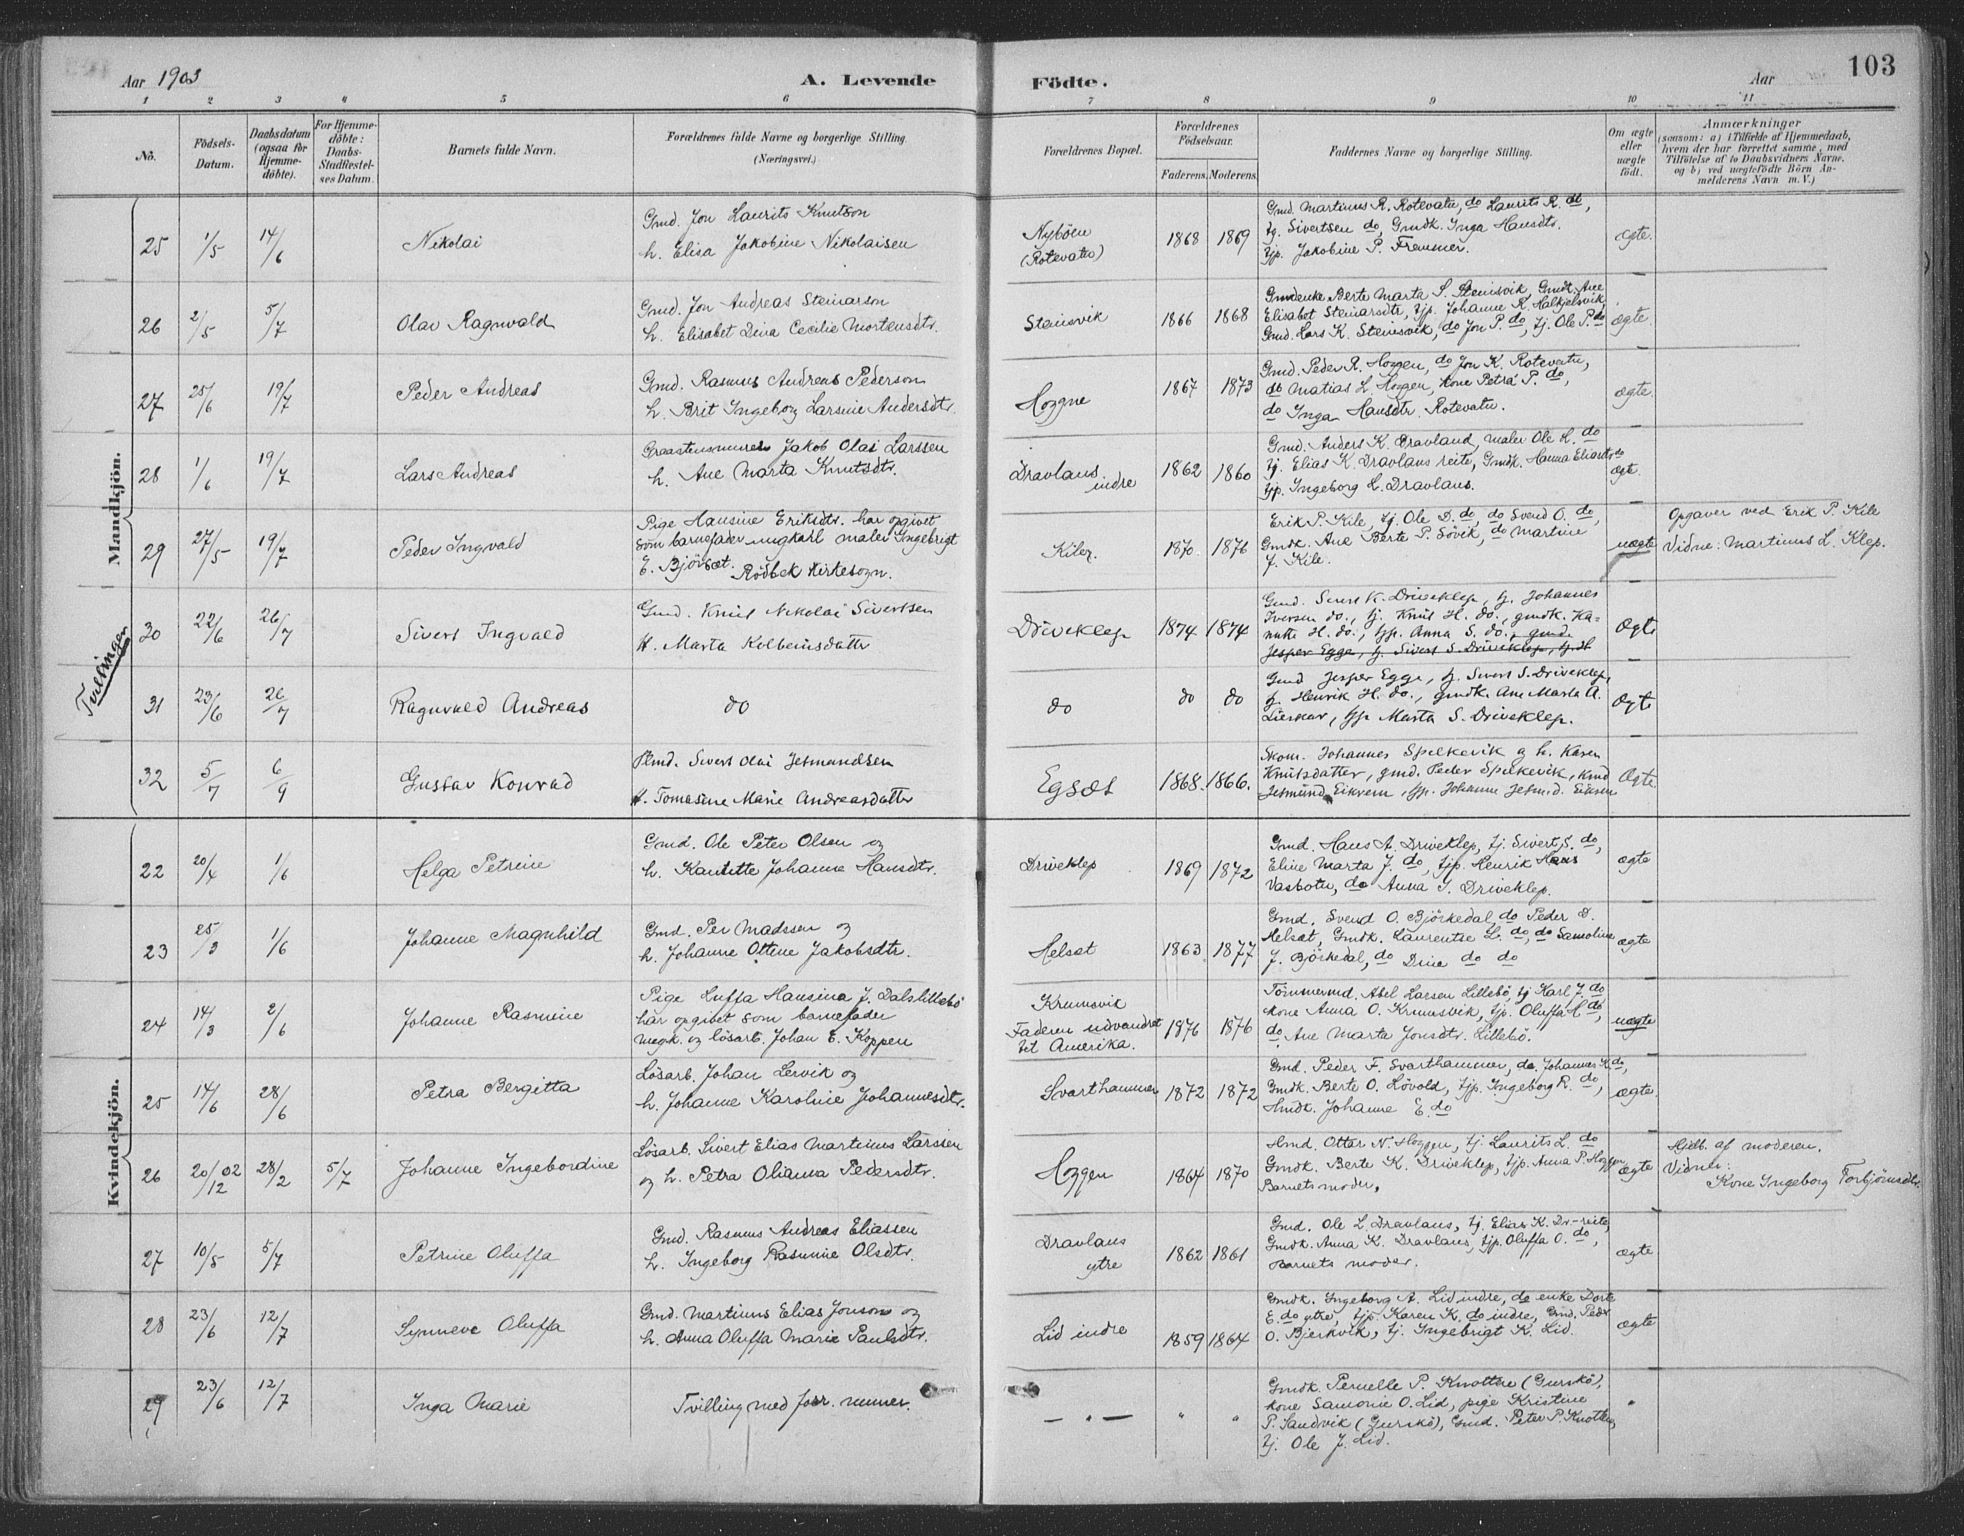 Aar 1903
A. Levende
Födte.
Aar
103
1 2 3 4 5 6 7 8 9 10 11
No.
Födsels-
Datum.
Daabsdatum
(ogsaa för
Hjemme-
döbte).
For Hjemme-
döbte:
Daabs-
Stadfæstel-
ses Datum.
Barnets fulde Navn.
Forældrenes fulde Navne og borgerlige Stilling
(Næringsvei.)
Forældrenes Bopæl.
Forældrenes
Födselsaar.
Faderens. Moderens.
Faddernes Navne og borgerlige Stilling.
Om ægte
eller
uægte
födt.
Anmærkninger
(saasom: a) i Tilfælde af Hjemmedaab,
hvem der har forrettet samme, med
Tilföielse af to Daabsvidners Navne.
og b) ved uægtefödte Börn An-
melderens Navn m. V.)
Mandkjön.
25 1/5 14/6 Nikolai
Gmd. Jon Laurits Knutson
h. Elisa Jakobine Nikolaisen
Nyböen
(Rotevatn)
1868 1869
Gmd. Martinus R. Rotevatn, do Laurits R. do,
tj. Sivertsen do, Gmdk. Inga Hansdtr.
tjp. Jakobine P. Fremmer.
ægte.
26 2/5 5/7 Olav Ragnvald
Gmd. Jon Andreas Steinarson
h. Elisabet Dina Cecilie Mortensdtr.
Steinsvik
1866 1868
Gmdenke Berte Marta S. Steinsvik, Gmdk. Ane
Elisabet Steinarsdtr, tjp. Johanne K. Halkjelsvik,
Gmd. Lars K. Steinsvik, do Jon P. do, tj. Ole P. do
ægte.
27 25/6 19/7 Peder Andreas
Gmd. Rasmus Andreas Pederson
h. Brit Ingeborg Larsine Andersdtr.
Hoggne
1867 1873
Gmd. Peder R. Hoggen, do Jon K. Rotevatn,
do Matias L. Hoggen, kone Petra P. do,
do Inga Hansdtr. Rotevatn.
ægte.
28 1/6 19/7 Lars Andreas
Graastensmurer Jakob Olai Larssen
h. Ane Marta Knutsdtr.
Dravlaus
indre
1862 1860
Gmd. Anders K. Dravland, maler Ole K. do
tj. Elias K. Dravlaus reite, Gmdk. Hanna Eliasdtr do
tjp. Ingeborg L. Dravlaus.
ægt.
29 27/5 19/7 Peder Ingvald
Pige Hansine Eriksdtr. har opgivet
som barnefader ungkarl maler Ingebrigt
E. Björset. Rödbek Kirkesogn.
Kile
1870. 1876
Erik P. Kile, tj. Ole D. do, do Svend O. do,
Gmdk. Ane Berte P. Sövik, do Martine
J. Kile.
uægte
Opgaver ved Erik P. Kile
Vidne: Martinus L. Klep.
Tvillinger
30 22/6 26/7 Sivert Ingvald
Gmd. Knut Nikolai Sivertsen
H. Marta Kolbeinsdatter
Driveklep
1874 1874
Gmd. Sivert K. Driveklep, tj. Johannes
Iversen do., tj. Knut H. do., gmdk. Ka-
nutte H. do., tjp. Anna S. do., gmd.
Jesper Egge, tj. Sivert S. Driveklep, tj. H
Ægte
31 23/6 26/7 Ragnvald Andreas
do
do
do do
Gmd Jesper Egge, tj. Sivert S. Driveklep,
tj. Henrik H. do., gmdk. Ane Marta A.
Lieskar, tjp Marta S. Driveklep.
Ægte
32 5/7 6/9 Gustav Konrad
Plmd. Sivert Olai Jetmundsen
H. Tomasine Marie Andreasdatter
Egsæt
1868. 1866.
Skom. Johannes Spelkevik og h. Karen
Knutsdatter, gmd. Peder Spelkevik, Knud
Jetmund Eikrem, tjp. Johanne Jetm.d. Eikrem
Ægte
Kvindekjön.
22 20/4 1/6 Helga Petrine
Gmd. Ole Peter Olsen og
h. Kanutte Johanne Hansdtr.
Driveklep
1869 1872
Gmd. Hans A. Driveklep, tj. Sivert S. do,
Eline Marta J. do, tjp. Henrik Hans
Vasbotn, do Anna S. Driveklep.
ægte
23 25/3 1/6 Johanne Magnhild
Gmd. Per Madssen og
h. Johanne Ottine Jakobsdtr.
Helset
1863. 1877
Gmd. Svend O. Björkedal, do Peder D.
Helset, Gmdk. Laurentse L. do, do Samoline
J. Björkedal, do Dine do do
ægte
24 14/3 2/6 Johanne Rasmine
Pige Luffa Hansina J. Dalslillebö
har opgivet som barnefader
ungk. og lösarb. Johan E. Koppen
Krumsvik
Faderen udvandret
til Amerika.
1876 1876
Tömmermd. Abel Larsen Lillebö, tj Karl J. do
kone Anna O. Krumsvik, tjp. Oluffa H do,
do. Ane Marta Jonsdtr. Lillebö.
uægte
25 14/6 28/6 Petra Bergitta
Lösarb. Johan Lervik og
h. Johanne Karoline Johannesdtr.
Svarthammer
1872 1872
Gmd. Peder F. Svarthammer, do. Johannes K. do,
Gmdk. Berte O. Lövold, tjp. Ingeborg R. do,
Hmdk. Johanne E. do
ægte.
26 20/12 02 28/2 5/7 Johanne Ingebordine
Lösarb. Sivert Elias Martinus Larssen
og h. Petra Olianna Pedersdtr.
Hoggen
1864 1870
Hmd. Otter N. Hoggen, tj. Laurits L. do
Gmdk. Berte K. Driveklep, tjp. Anna P. Hoggen
Barnets moder,
ægte
Hjdb. af moderen.
Vidner:
Kone Ingeborg Torbjörnsdtr.
27 10/5 5/7 Petrine Oluffa
Gmd. Rasmus Andreas Eliassen
h. Ingeborg Rasmine Olsdtr.
Dravlaus
ytre
1862 1861
Gmd. Ole L. Dravlaus, tj. Elias K. Dr.-reite,
Gmdk. Anna K. Dravlaus, tjp. Oluffa O. do,
Barnets moder.
ægte
28 23/6 12/7 Synneve Oluffa
Gmd. Martinus Elias Jonson og
h. Anna Oluffa Marie Paulsdtr.
Lid indre
1859 1864
Gmdk. Ingeborg A. Lid indre, do enke Dorte
E. do ytre, tjp. Karen K. do indre, Gmd. Peder
O. Bjerkvik, tj. Ingebrigt K. Lid.
ægte
29 23/6 12/7 Inga Marie
Tvilling med forr. numer.
— " —
" "
Gmdk. Pernelle P. Knotten (Gurskö),
kone Samonie O. Lid, pige Kristine
P. Sandvik (Gurskö), Gmd. Peter P. Knotten,
tj. Ole J. Lid.
"